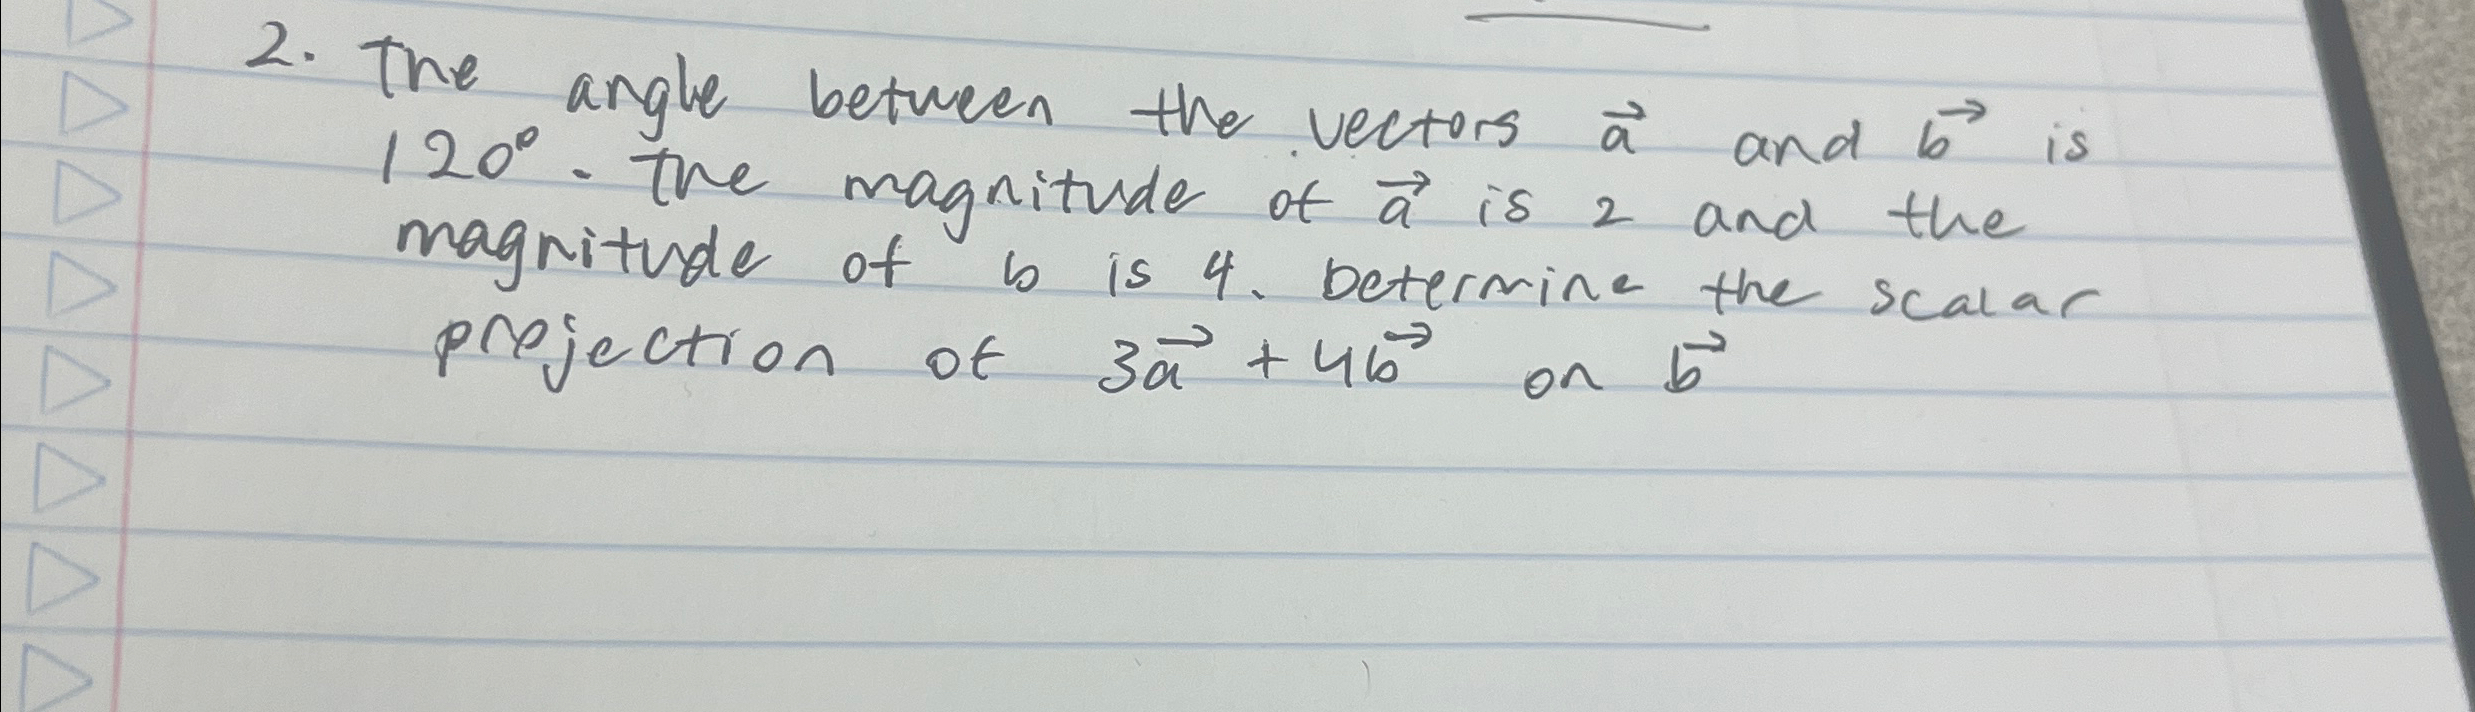 2. The angle between the vectors a⃗ and b⃗ is
120°. The magnitude of a⃗ is 2 and the
magnitude of b is 4. Determine the scalar
projection of 3a⃗ + 4b⃗ on b⃗